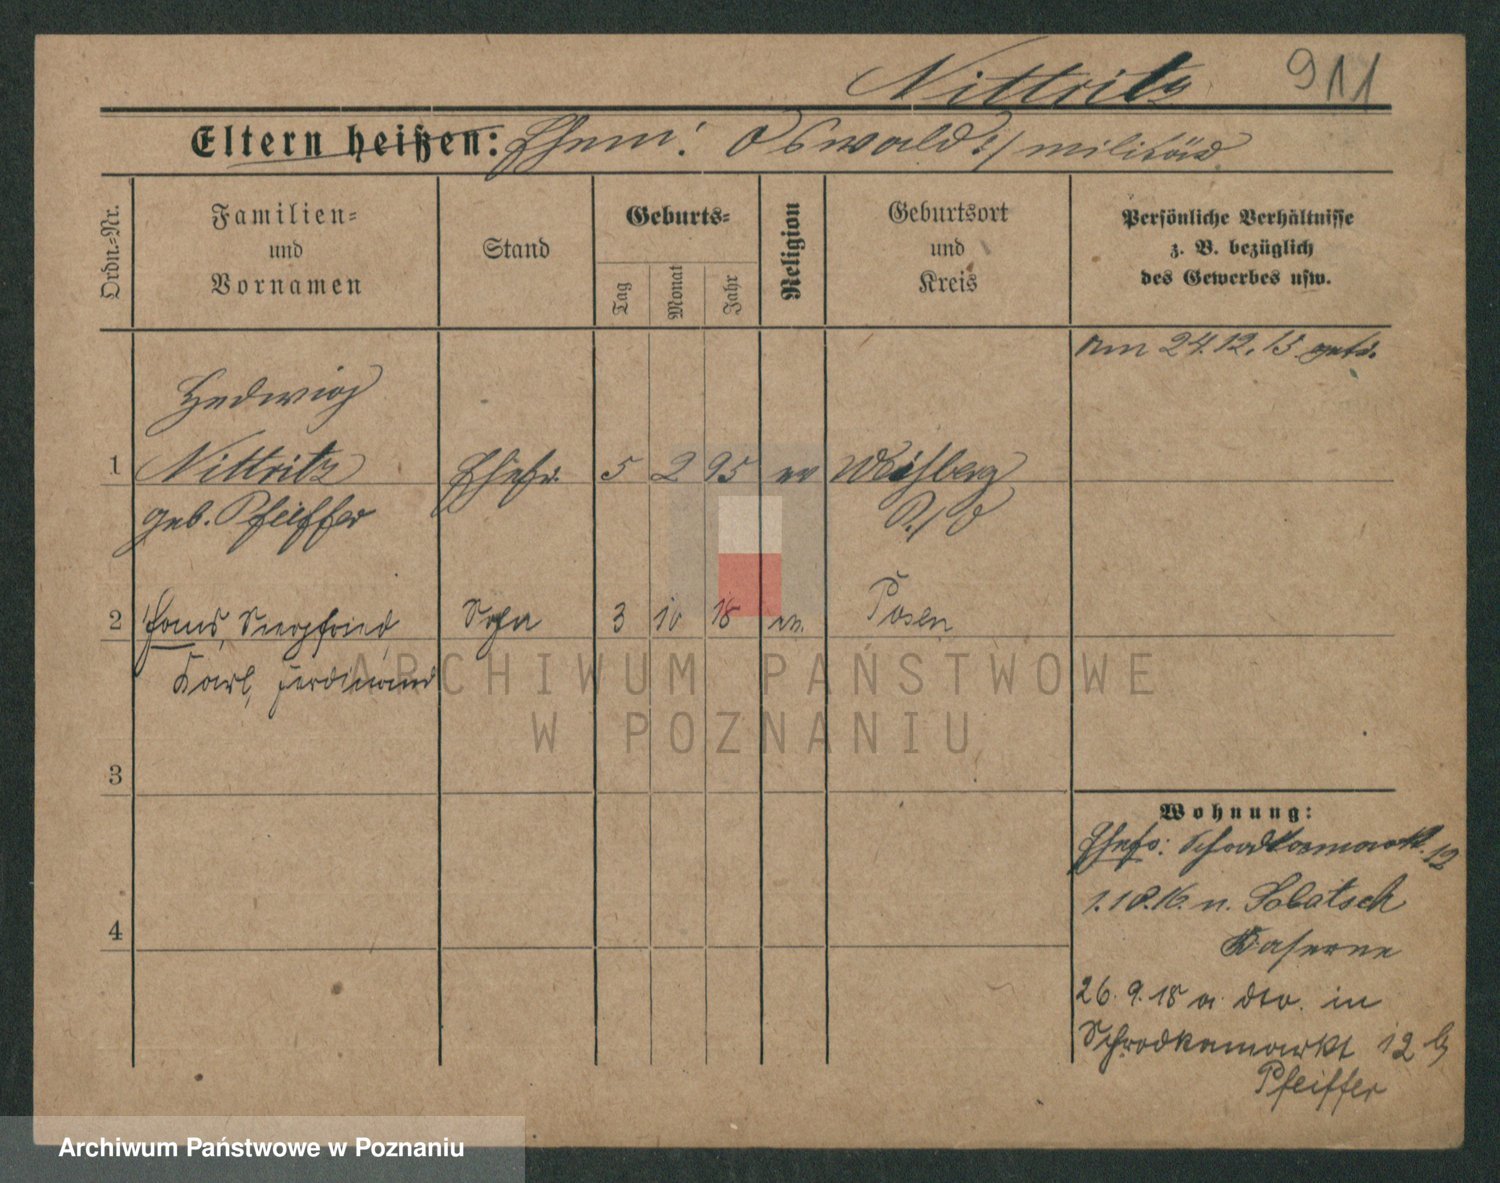 Nittritz 911
Eltern heißen: Ehem: Oswald /militär
Ordn.=Nr.
Familien=
und
Vornamen
Stand
Geburts=
Tag
Monat
Jahr
Religion
Geburtsort
und
Kreis
Persönliche Verhältnisse
z. B. bezüglich
des Gewerbes usw.
am 24.12.15 getr.
Hedwig
1 Nittritz Ehefr. 5 2 95 ev
geb. Pfeiffer
2 Hans, Siegfried, Sohn 3 10 18 ev. Posen
Karl, Ferdinand
3
4
Wohnung:
Ehefr: Schrodkamarkt. 12
1.10.16. n. Solatsch
Kaserne
26. 9. 18 a dto. in
Schrodkamarkt 12 b
Pfeiffer
ARCHIWUM PAŃSTWOWE
W POZNANIU
Archiwum Państwowe w Poznaniu